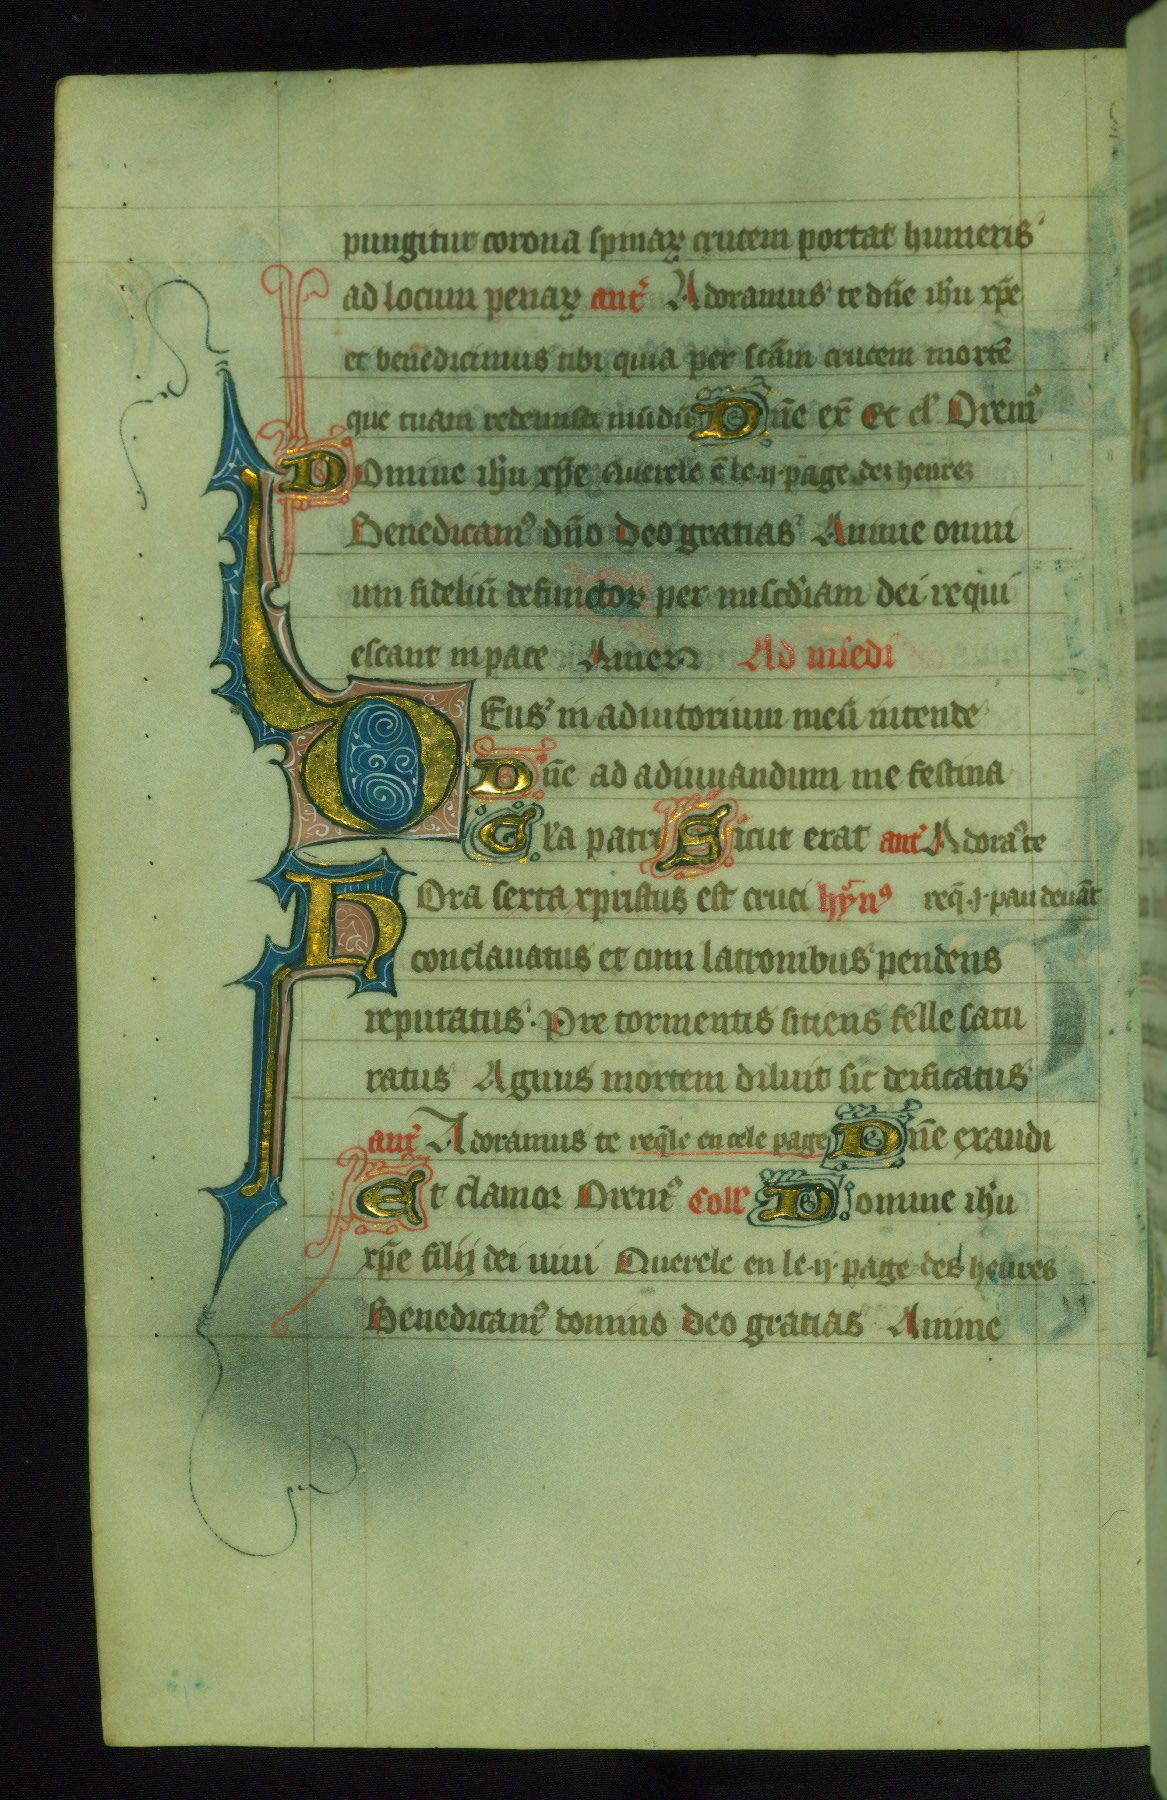 pungitur corona spinaꝝ crucem portat humeris
ad locum penaꝝ ant̾ Adoramus te dn̄e ihū xp̄e
et benedicimus tibi quia per sc̄am crucem mortē
que tuam redemisti mūdū Dn̄e ex̄ Et cl̾ Oremꝰ
Domine ihū xp̄e Querele ē le .ij. page des heures
Benedicamꝰ dn̄o Deo gratias Anime omni
um fideliū defunctoꝝ per miscd̾iam dei requi
escant in pace Amen Ad miedi
Deus in adiutorium meū intende
Dn̄e ad adiuuandum me festina
Gl̾a patri Sicut erat ant̾ Adoraꝰte
Hora sexta xpristus est cruci hȳnꝰ req̄.j. pau deuāt
conclauatus et cum latronibus pendens
reputatus. Pre tormentis sitiens felle satu
ratus Agnus mortem diluit sic deificatus
ant̾ Adoramus te req̄le en cele page Dn̄e exaudi
Et clamor Oremꝰ Coll̾ Domine ihū
xp̄e filij dei uiui Querele en le .ij. page des heures
Benedicamꝰ domino Deo gratias Anime